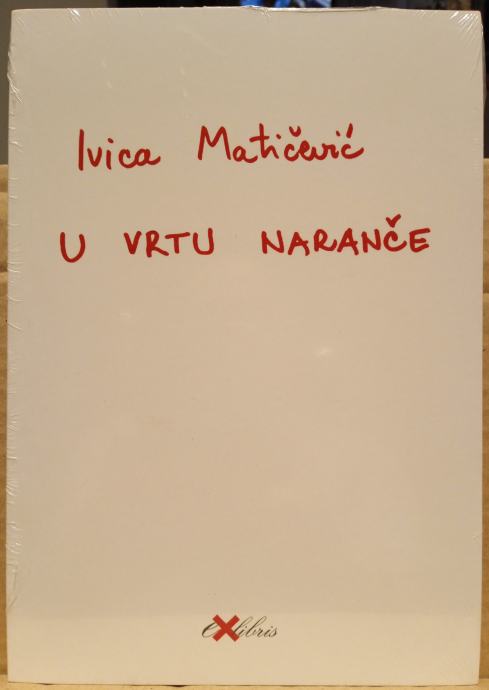 Ivica Matičević
U VRTU NARANČE
eXlibris